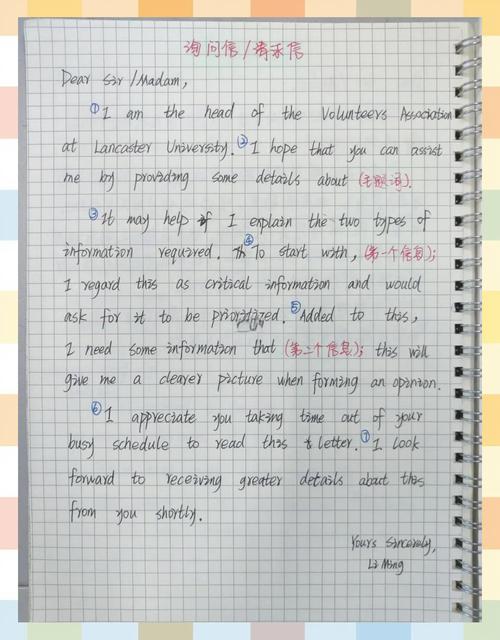 询问信/请求信
Dear Sir/Madam,
①I am the head of the Volunteers Association
at Lancaster University.②I hope that you can assist
me by providing some details about (主题词).
③It may help if I explain the two types of
information required. ④To start with, (第一个信息);
I regard this as critical information and would
ask for it to be prioritized. ⑤Added to this,
I need some information that (第二个信息); this will
give me a clearer picture when forming an opinion.
⑥I appreciate you taking time out of your
busy schedule to read this letter.⑦I look
forward to receiving greater details about this
from you shortly.
Yours sincerely,
Li Ming